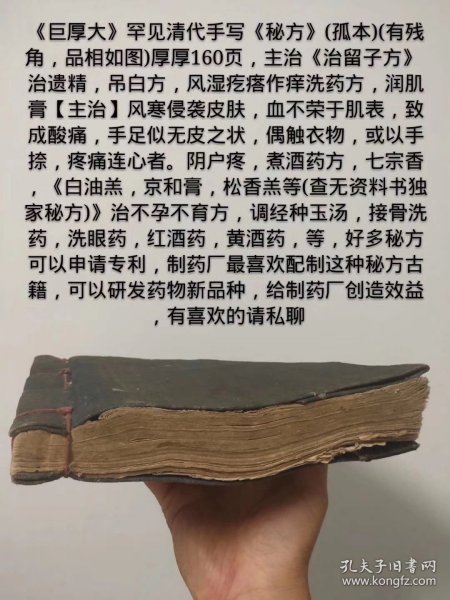 《巨厚大》罕见清代手写《秘方》(孤本)(有残
角，品相如图)厚厚160页，主治《治留子方》
治遗精，吊白方，风湿疙瘩作痒洗药方，润肌
膏【主治】风寒侵袭皮肤，血不荣于肌表，致
成酸痛，手足似无皮之状，偶触衣物，或以手
捺，疼痛连心者。阴户疼，煮酒药方，七宗香
，《白油羔，京和膏，松香羔等(查无资料书独
家秘方)》治不孕不育方，调经种玉汤，接骨洗
药，洗眼药，红酒药，黄酒药，等，好多秘方
可以申请专利，制药厂最喜欢配制这种秘方古
籍，可以研发药物新品种，给制药厂创造效益
，有喜欢的请私聊
孔夫子旧书网
www.kongfz.com